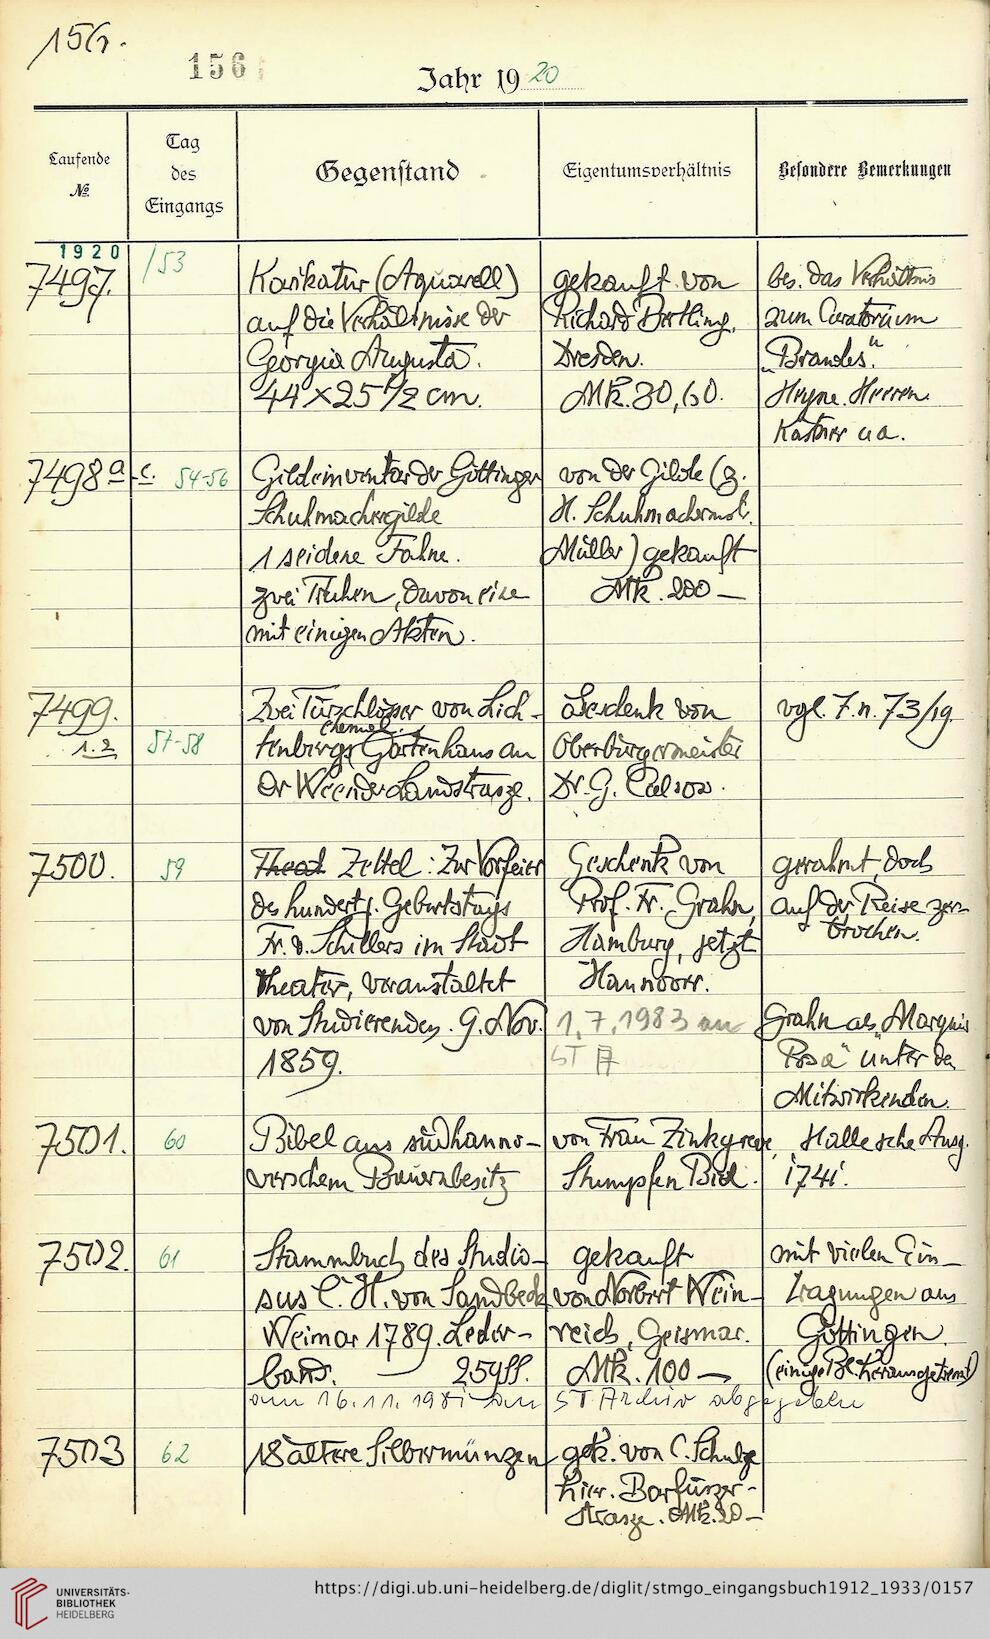 156.
156
Jahr 1920
Laufende
No.
Tag
des
Eingangs
Gegenstand
Eigentumsverhältnis
Besondere Bemerkungen
1920
7497.
/53
Karikatur (Aquarell)
auf die Verhältnisse der
Georgia Augusta.
44 x 25 1/2 cm.
gekauft von
Richard Bertling,
Dresden.
Mk. 30,60.
bes. das Verhältnis
zum Curatorium
„Brandes."
Heyne. Heeren.
Kästner u a.
7498 a-c.
54-56
Gildeinventar der Göttinger
Schuhmachergilde
1 seidene Fahne.
zwei Truhen, davon eine
mit einigen Akten.
von der Gilde (z.
H. Schuhmachermstr.
Müller) gekauft
Mk. 200 —
7499.
1.2
57-58
Zwei Türschlösser von Lich-
ehemal.
tenbergs Gartenhaus an
der Weender Landstrasze.
Geschenk von
Oberbürgermeister
Dr. G. Calsow.
vgl. J. n. 73/19.
7500.
59
Theat Zettel: Zur Vorfeier
des hundertj. Geburtstags
Fr. v. Schillers im Stadt
theater, veranstaltet
von Studierenden. 9. Nov.
1859.
Geschenk von
Prof. Fr. Grahn,
Hamburg, jetzt
Hannover.
1.7.1983 an
ST A
gerahmt, doch
auf der Reise zer-
brochen.
Grahn als „Marquis
Posa" unter den
Mitwirkenden.
7501.
60
Bibel aus südhanno-
verschem Bauernbesitz
von Frau Zinkgrewe,
Stumpfen Biel.
Hallesche Ausg.
1741.
7502.
61
Stammbuch des Studio-
sus C. H. von Sandbeck
Weimar 1789. Leder-
band. — 259 ff.
gekauft
von Norbert Wein-
reich, Geismar.
Mk. 100 —
mit vielen Ein-
tragungen aus
Göttingen
(einige Bl. herausgetrennt)
am 16.11.1981 an ST Archiv abgegeben
7503
62
18 ältere Silbermünzen
gek. von C. Schulze
hier. Barfüszer-
strasze. Mk. 20 —
UNIVERSITÄTS-
BIBLIOTHEK
HEIDELBERG
https://digi.ub.uni-heidelberg.de/diglit/stmgo_eingangsbuch1912_1933/0157